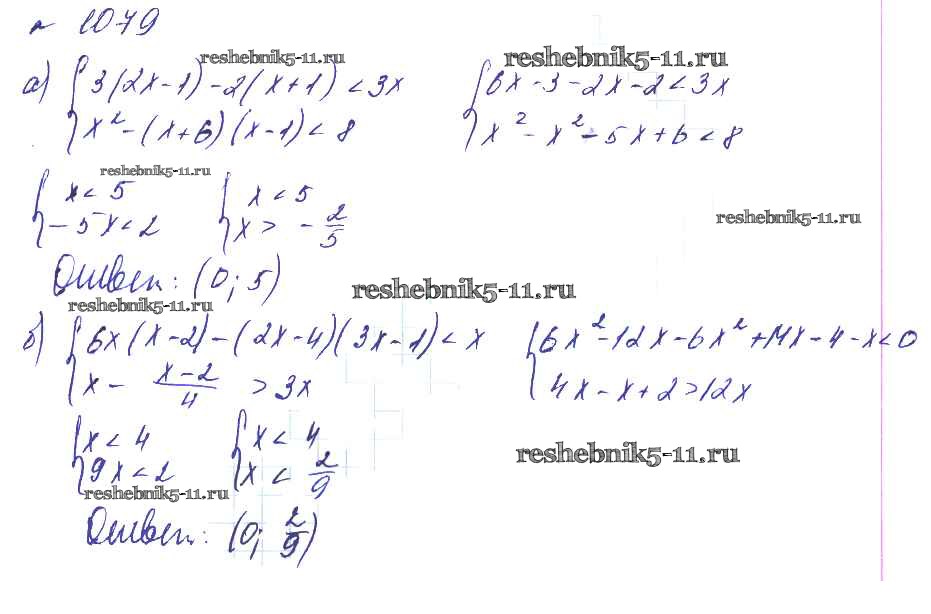 № 1079
reshebnik5-11.ru reshebnik5-11.ru
а) { 3(2x-1)-2(x+1)<3x { 6x-3-2x-2<3x
x²-(x+6)(x-1)<8 x²-x²-5x+6<8
reshebnik5-11.ru
{ x<5 { x<5
-5x<2 x>-2/5
reshebnik5-11.ru
Ответ: (0; 5)
reshebnik5-11.ru
reshebnik5-11.ru
б) { 6x(x-2)-(2x-4)(3x-1)<x { 6x²-12x-6x²+14x-4-x<0
x - (x-2)/4 >3x 4x-x+2>12x
{ x<4 { x<4
9x<2 x<2/9
reshebnik5-11.ru
reshebnik5-11.ru
Ответ: (0; 2/9)